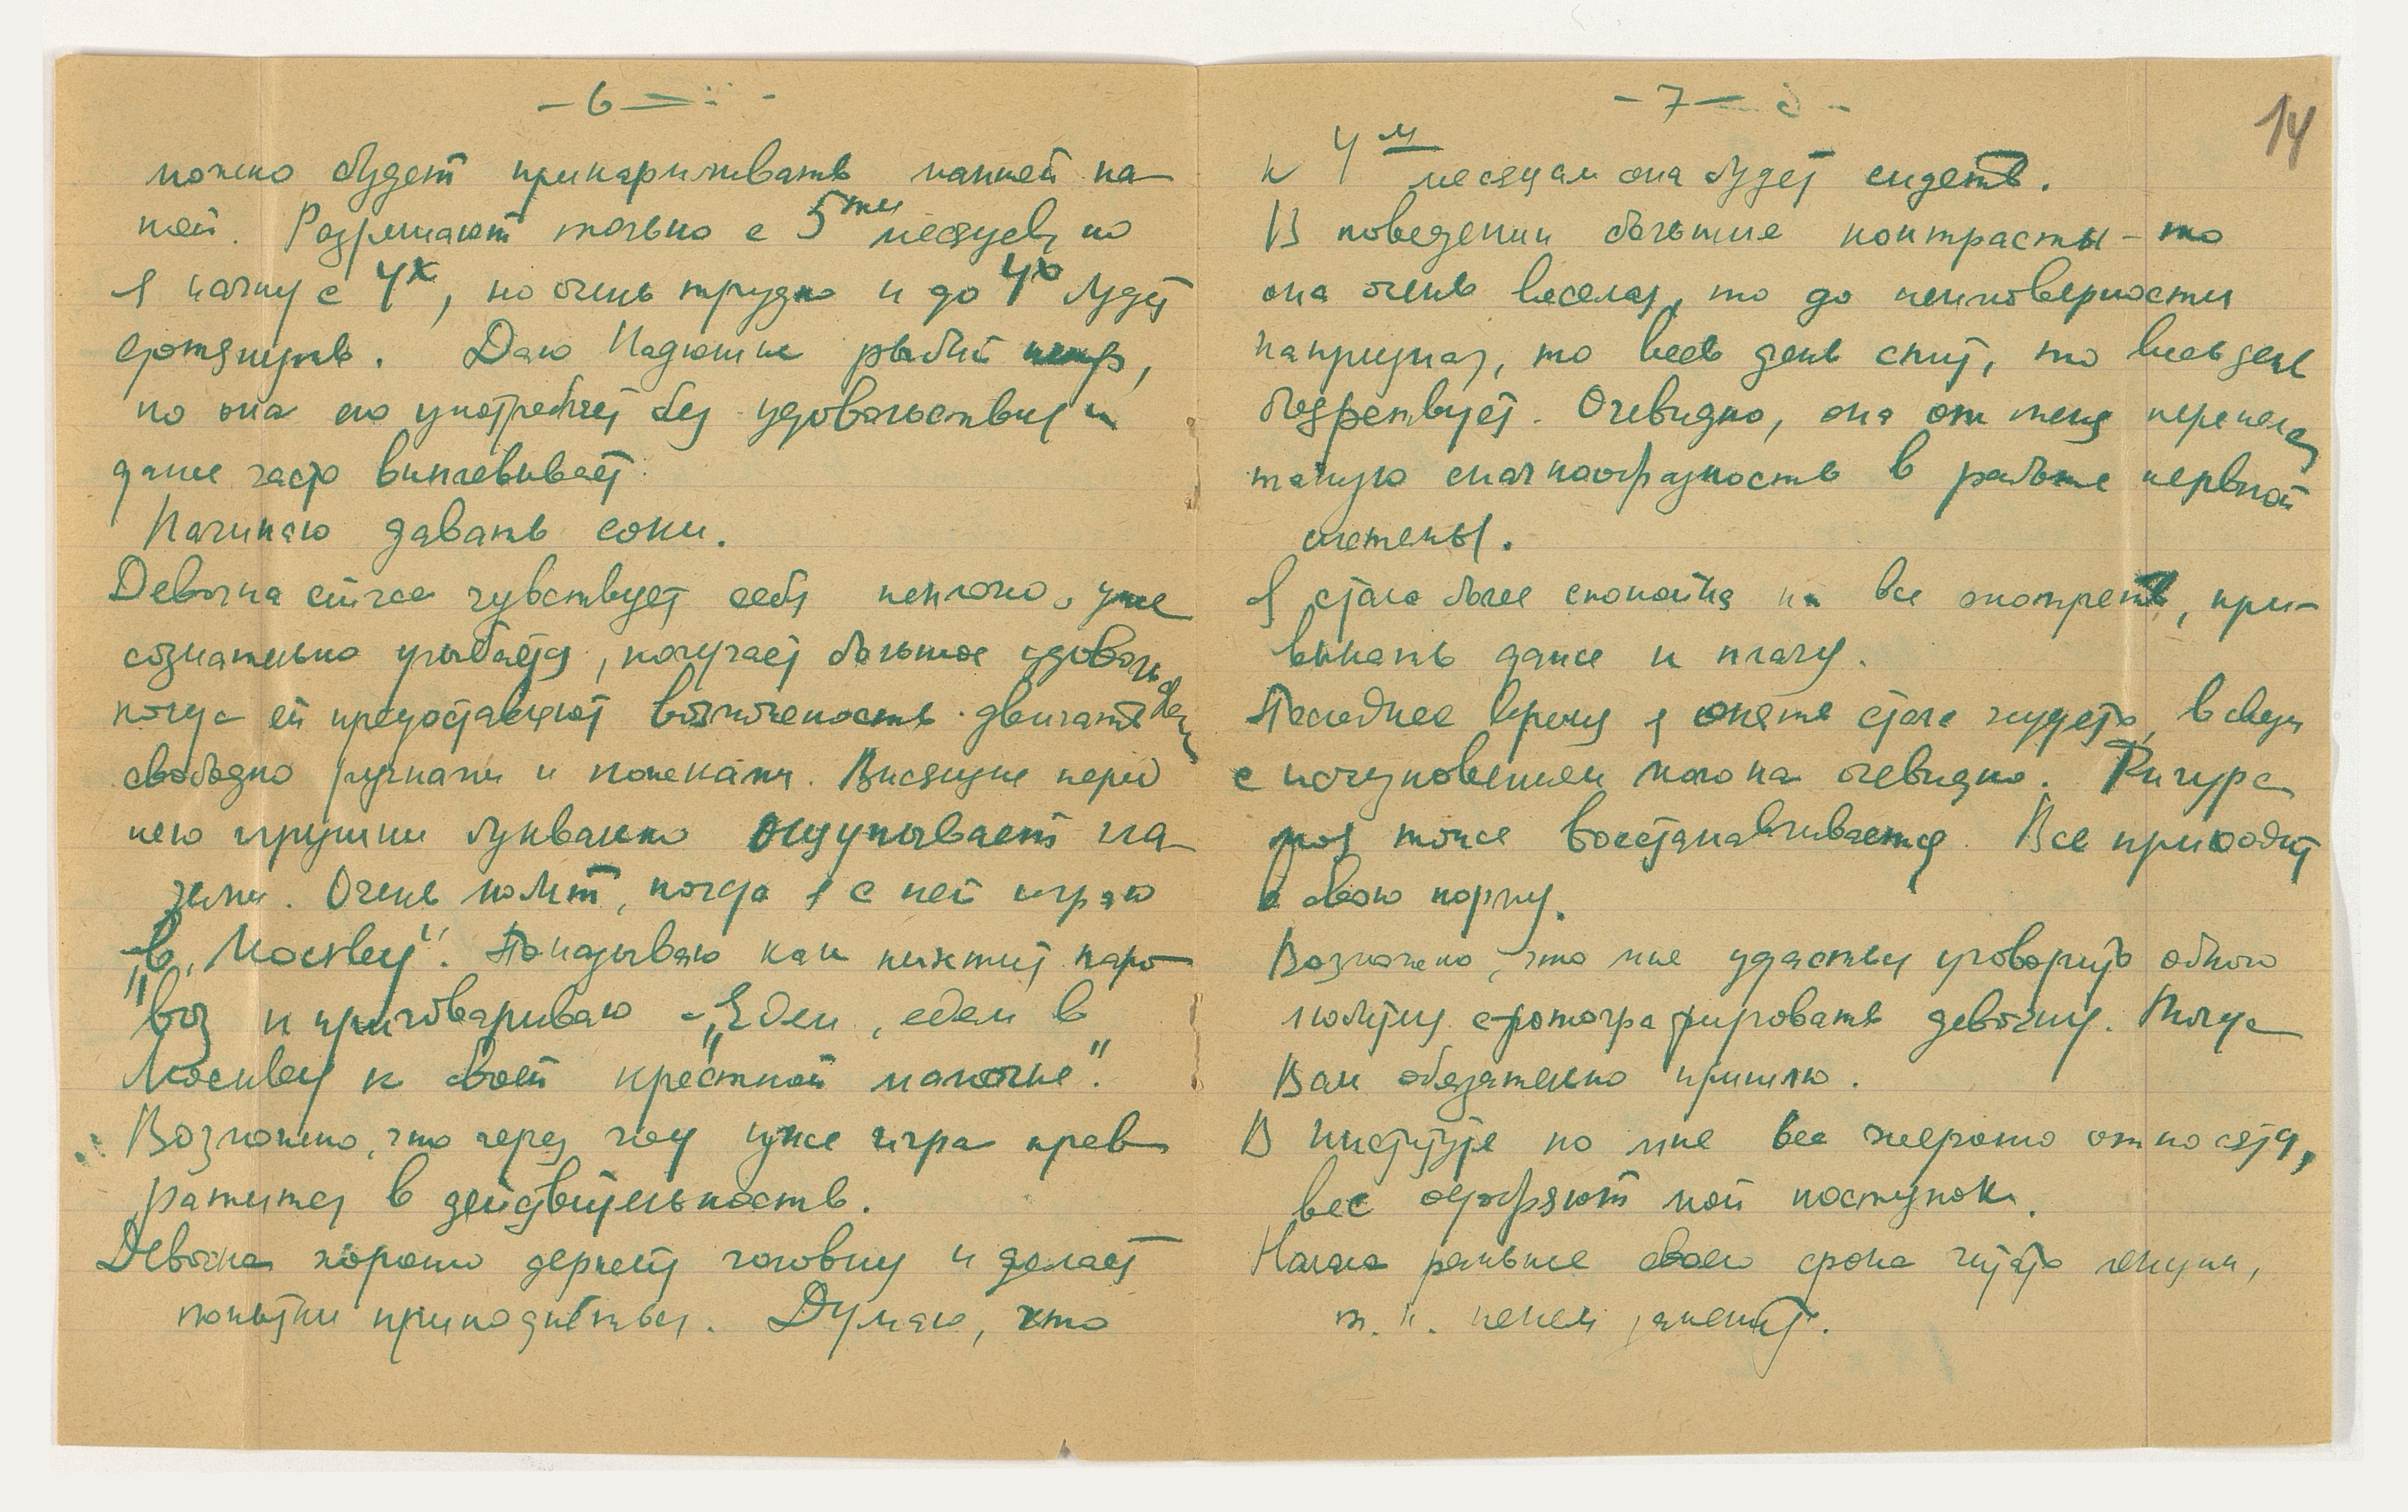 - 6 -
можно будет прикармливать манной ка-
шей. Разрешают только с 5ти месяцев, но
я начну с 4х, но очень трудно и до 4х будет
дотянуть. Даю Надюшке рыбий жир,
но она его употребляет без удовольствия и
даже часто выплевывает.
Начинаю давать соки.
Девочка сейчас чувствует себя неплохо, уже
сознательно улыбается, получает большое удовольствие,
когда ей предоставляют возможность двигать
свободно ручками и ножками. Висящие перед
нею игрушки буквально ощупывает гла-
зами. Очень любит, когда я с ней играю
"в Москву". Показываю как пыхтит паро-
воз и приговариваю - "Едем, едем в
Москву к своей крестной мамочке".
Возможно, что через год уже игра прев-
ратится в действительность.
Девочка хорошо держит головку и делает
попытки приподняться. Думаю, что
- 7 -
14
к 4м месяцам она будет сидеть.
В поведении большие контрасты - то
она очень веселая, то до неимоверности
капризная, то весь день спит, то весь день
бодрствует. Очевидно, она от меня переняла
такую скачкообразность в работе нервной
системы.
Я стала более спокойна на все смотреть, при-
выкать даже к плачу.
Последнее время я опять стала худеть, в связи
с исчезновением молока очевидно. Фигура
моя тоже восстанавливается. Все приходит
в свою норму.
Возможно, что мне удастся уговорить одного
сфотографировать девочку. Тогда
Вам обязательно пришлю.
В институте ко мне все хорошо относятся,
все одобряют мой поступок.
Начала раньше своего срока читать лекции,
т. к. некем заменить.